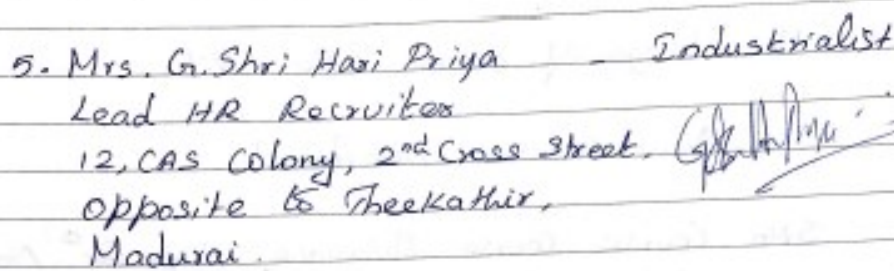 5. Mrs. G. Shri Hari Priya - Industrialist
Lead HR Recruiter
12, CAS Colony, 2nd Cross Street.
Opposite to Theekathir,
Madurai.